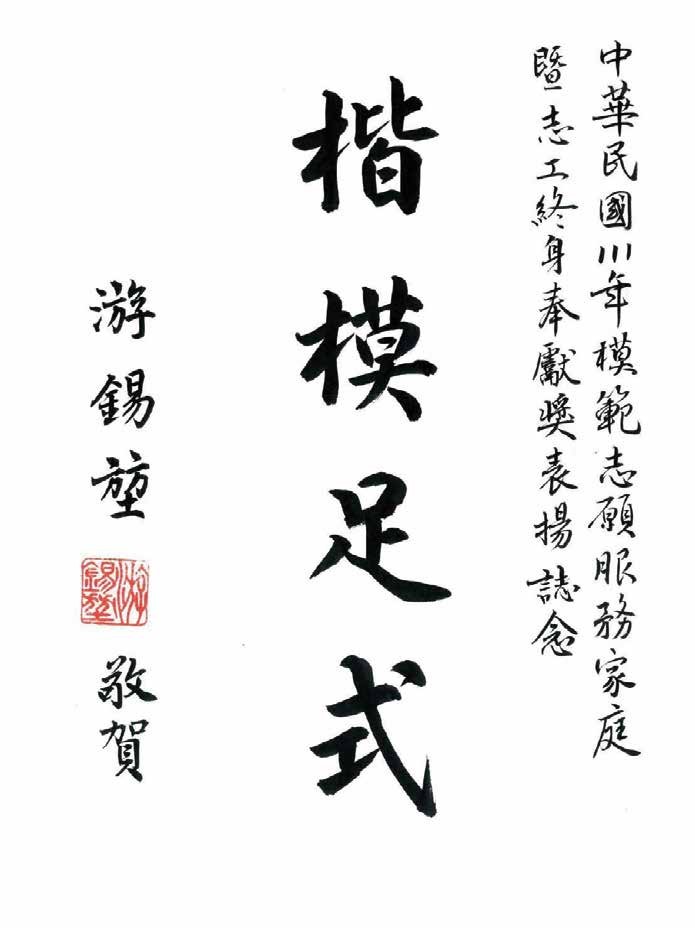 中華民國111年模範志願服務家庭
暨志工終身奉獻獎表揚誌念
楷模足式
游錫堃
游錫堃
敬賀